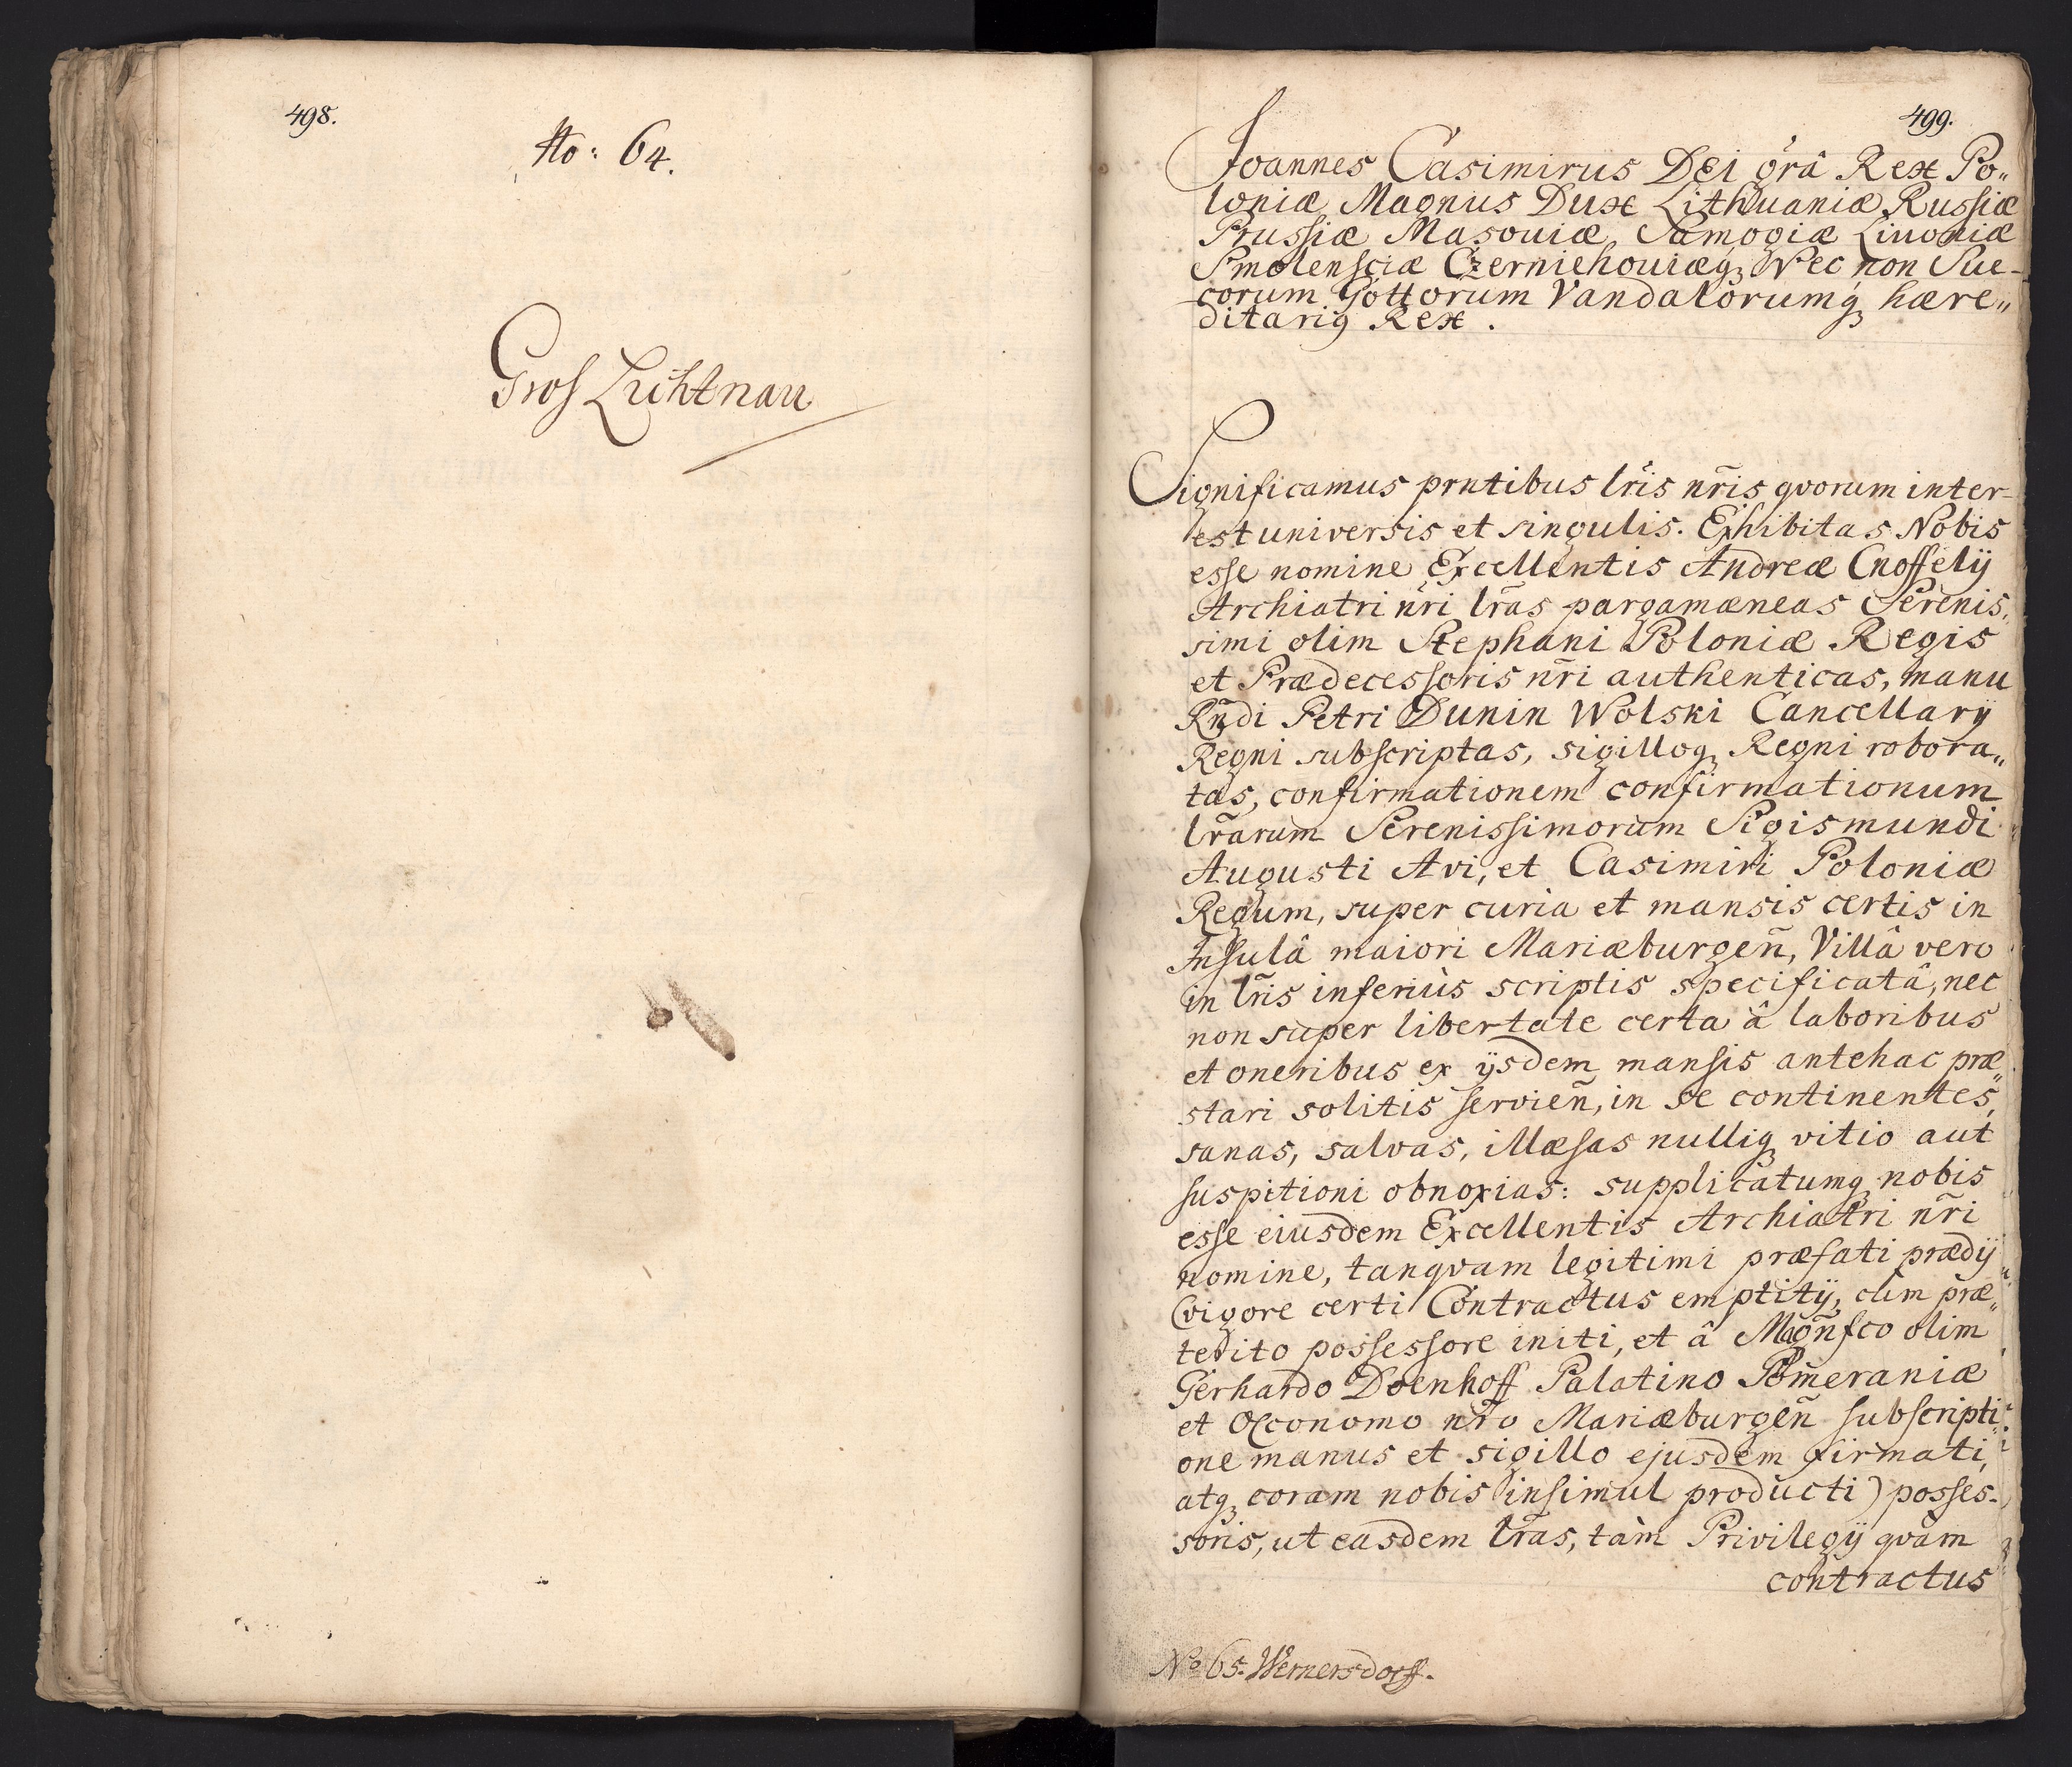 498.
No: 64.
Gros Lichtnau
499.
Joannes Casimirus DEI grâ Rex Po„
loniæ Magnus Dux Lithuaniæ Russiæ
Prussiæ Masouiæ Samogiæ Liuoniæ
Smolensciæ Czerniehouiæq₃ Nec non Sue-
corum Gottorum Vandalorumq₃ hære„
ditariꝯ Rex.
Significamus prntibus lr̃is nr̃is qvorum inter-
est universis et singulis. Exhibitas Nobis
esse nomine Excellentis Andreæ Cnoffelij
Archiatri nr̃i lr̃as pargamæneas Serenis„
simi olim Stephani Poloniæ Regis
et Prædecessoris nr̃i authenticas, manu
Rñdi Petri Dunin Wolski Cancellarij
Regni subscriptas, sigilloq₃ Regni robora„
tas, confirmationem confirmationum
lr̃arum Serenissimorum Sigismundi
Augusti Avi, et Casimiri Poloniæ
Regum, super curia et mansis certis in
Insulâ maiori Mariæburgeñ, Villâ vero
in lr̃is inferiùs scriptis specificatâ, nec
non super libertate certa â laboribus
et oneribus ex ijsdem mansis antehac præ„
stari solitis servieñ, in se continentes,
sanas, salvas, illæsas nulliq₃ vitio aut
suspitioni obnoxias: supplicatumq₃ nobis
esse eiusdem Excellentis Archiatri nr̃i
nomine, tanqvam legitimi præfati prædij
(vigore certi Contractus emptitij, cum præ„
tedito possessore initi, et â Magñfco olim
Gerhardo Doenhoff Palatino Pomeraniæ
et Oeconomo nr̃o Mariæburgeñ subscripti„
one manus et sigillo ejusdem firmati,
atq₃ coram nobis insimul producti) posses-
soris, ut easdem lr̃as, tàm Privilegij qvàm
contractus
No 65. Wernersdorff.